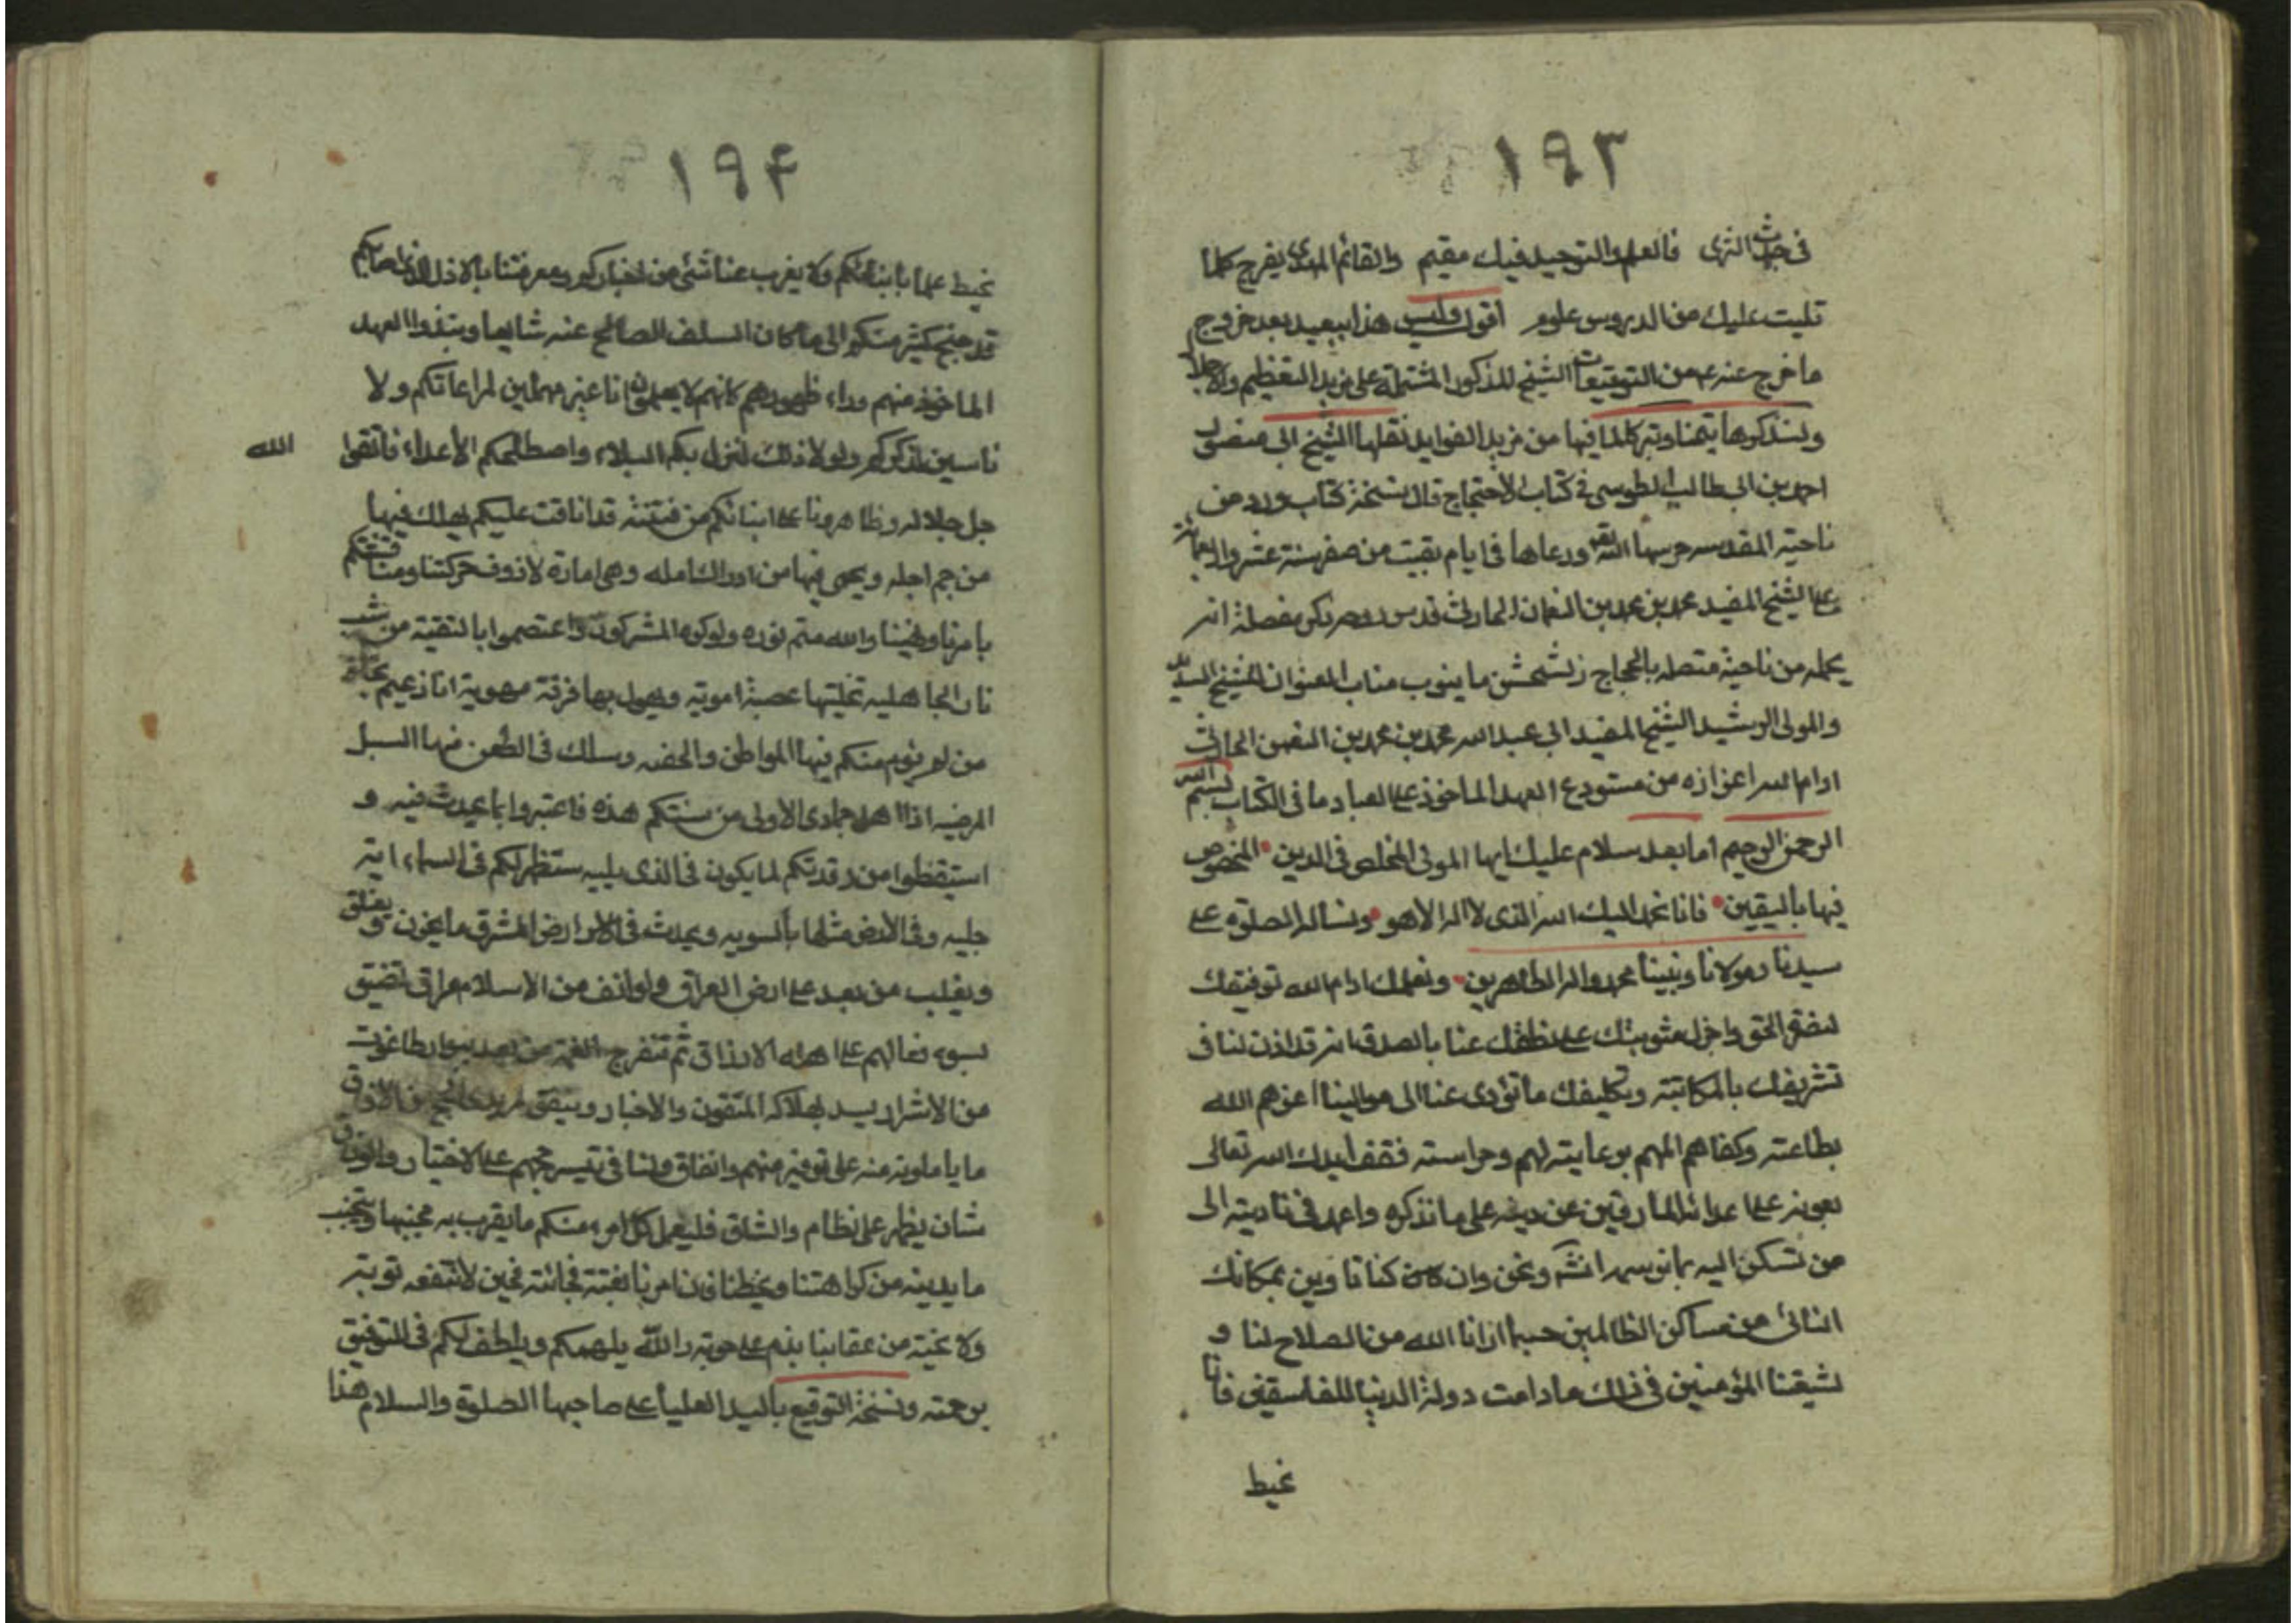 ١٩٣
في جدث الثرى فالعلم والتوحيد فيك مقيم والقائم المهدي يفرح كلما
تليت عليك من الدروس علوم اقول وليس هذا ببعيد بعد خروج
ما خرج عنه ع من التوقيعات الشيخ المذكور المشتملة على مزيد التعظيم والاجلال
ولنذكرها تيمنا وتبركا لما فيها من مزيد الفوايد نقلها الشيخ ابى منصور
احمد بن ابى طالب الطوسي في كتاب الاحتجاج قال نسخة كتاب ورد من
ناحيته المقدسه حرسها الله ورعاها في ايام بقيت من صفر سنة عشر واربعمائة
على الشيخ المفيد محمد بن محمد بن النعمان الحارثى قدس روحه ذكر موصله انه
يحمله من ناحية متصله بالحجاز نسخته ما ينوب مناب العنوان للشيخ السديد
والمولى الرشيد الشيخ المفيد ابي عبد الله محمد بن محمد بن النعمن الحارثى
ادام الله اعزازه من مستودع العهد الماخوذ على العباد ما في الكتاب بسم الله
الرحمن الرحيم اما بعد سلام عليك ايها المولى المخلص في الدين المخصوص
فيها باليقين فانا نحمد اليك الله الذي لا اله الا هو ونساله الصلوة على
سيدنا ومولانا ونبينا محمد واله الطاهرين ونعلمك ادام الله توفيقك
لنصرة الحق واجزل مثوبتك على نطقك عنا بالصدق انه قد اذن لنا في
تشريفك بالمكاتبة وتكليفك ما تؤدى عنا الى موالينا اعزهم الله
بطاعته وكفاهم المهم برعايته لهم وحراسته فقف ايدك الله تعالى
بعونه على اعدائه المارقين عن دينه على ما نذكره واعمل في تاديته الى
من تسكن اليه بما نرسمه انشاء ونحن وان كان كنا ثاوين بمكانك
النائي من مساكن الظالمين حسبما ارانا الله من الصلاح لنا و
لشيعتنا المؤمنين في ذلك ما دامت دولة الدنيا للفاسقين فانا
نحيط
١٩۴
نحيط علما بانبائكم ولا يعزب عنا شئ من اخباركم ومعرفتنا بالاذل الذي اصابكم
قد جنح كثير منكم الى ما كان السلف الصالح عنه شايعا ونبذوا العهد
الماخوذ منهم وراء ظهورهم كانهم لا يعلمون انا غير مهملين لمراعاتكم ولا
ناسين لذكركم ولولا ذلك لنزل بكم البلاء واصطلمكم الأعداء فاتقوا الله
جل جلاله وظاهرونا على انبائكم من فتنة قد انافت عليكم يهلك فيها
من حم اجله ويحمى فيها من ادرك امله وهى امارة لازوف حركتنا ومنافثتكم
بامرنا ونهينا والله متم نوره ولو كره المشركون واعتصموا بالتقية من شب
نار الجاهليه تخليتها عصبة اموية ويهول بها فرقة مهوية انا زعيم بنجاة
من لم يؤم منكم فيها المواطن والخفيه وسلك في الطعن منها السبل
المرضيه اذا اهل جمادى الأولى من سنتكم هذه فاعتبروا بما يحدث فيه و
استيقظوا من رقدتكم لما يكون في الذي يليه ستظهر لكم في السماء ايته
جليه وفي الأرض مثلها بالسويه ويحدث في الامر ارض المشرق ما يحزن و يغلق
ويغلب من بعد على ارض العراق طوائف من الاسلام مراق تضيق
بسوء فعالهم على اهله الارزاق ثم تنفرج الغمة من بعد ببوار طاغوت
من الاشرار يسر بهلاكه المتقون والاخيار ويتفق لمريدي الحج من الافاق
ما ياملونه منه على توفير منهم واتفاق ولنا في تيسير حجهم على الاختيار والوفاق
شان يظهر على نظام والشاق فليعمل كل امرء منكم ما يقرب به محبتنا ويتجنب
ما يدينه من كراهتنا وسخطنا فان امرنا بغتة فجائة فحين لا تنفعه توبته
ولا نجيته من عقابنا بندم على حوبة والله يلهمكم ويلطف لكم في التوفيق
برحمته ونسخة التوقيع باليد العليا على صاحبها الصلوة والسلام هذا